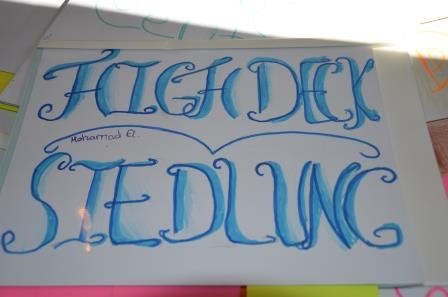 HIGH DECK
Mohamad El.
SIEDLUNG